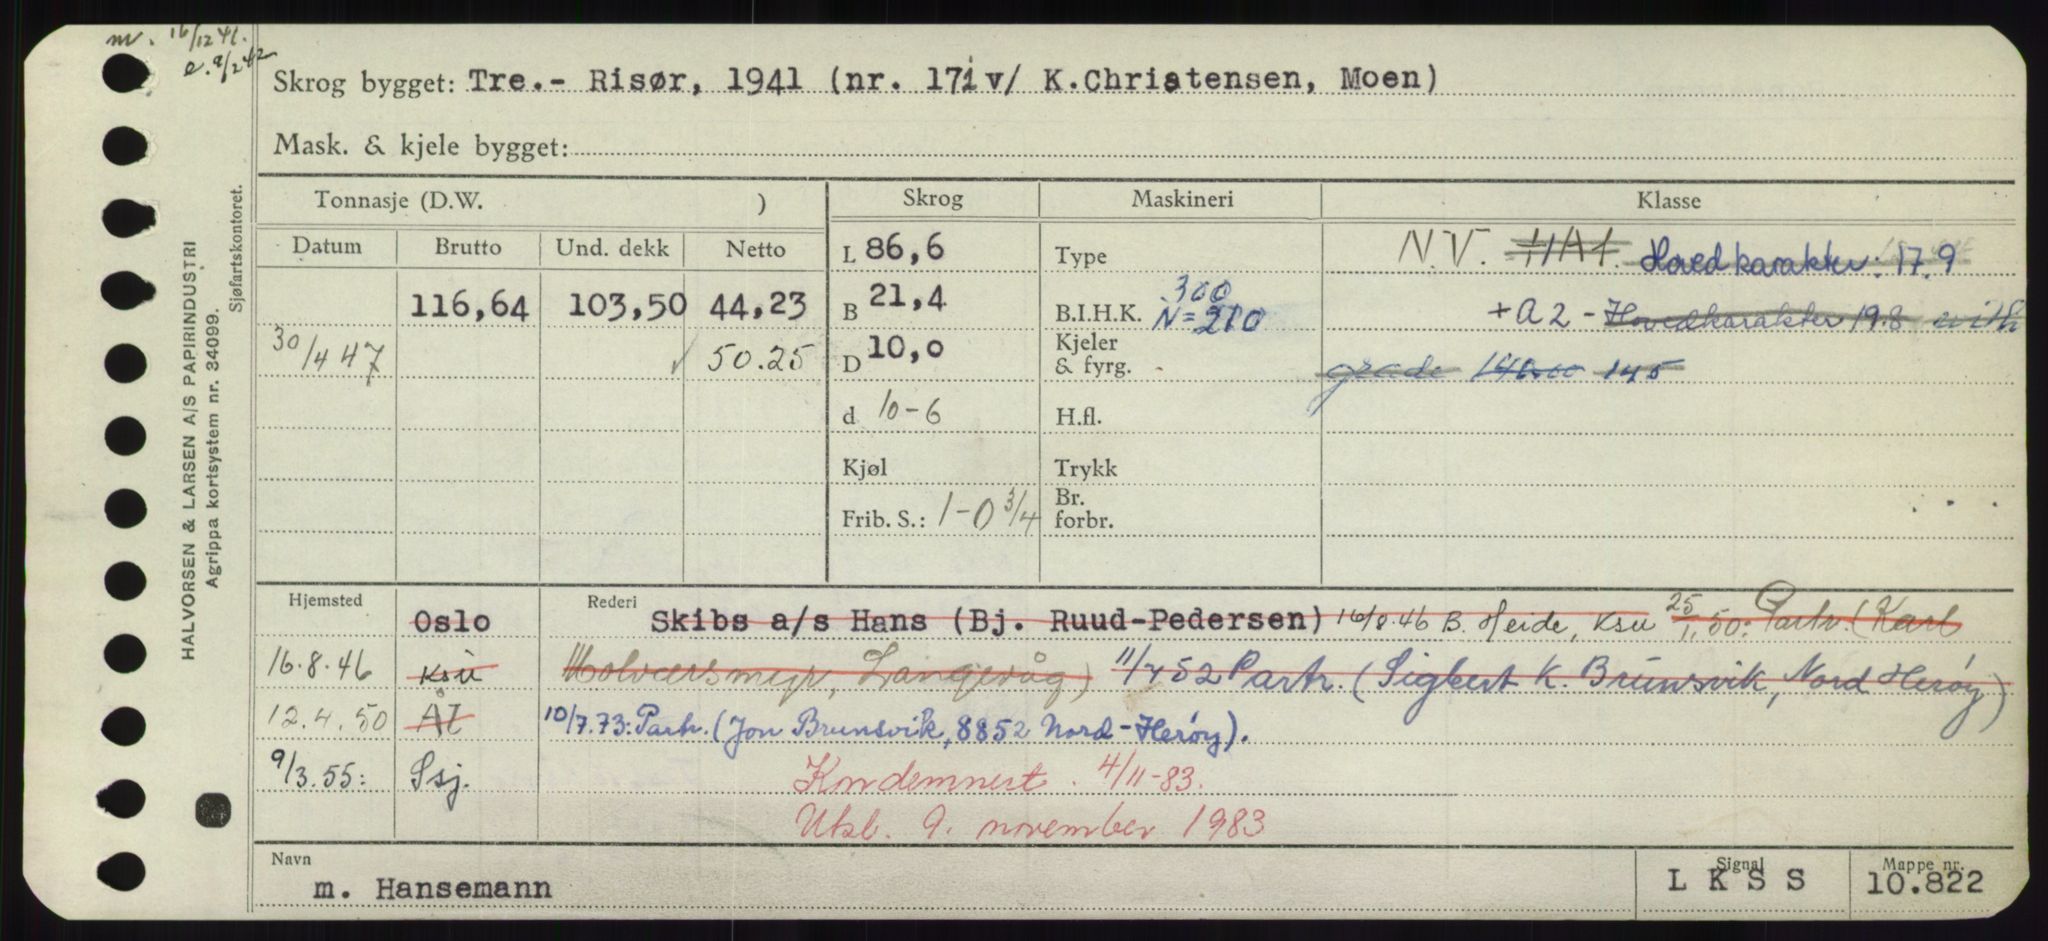 nr. 16/12 41.
e. 9/2 42
Skrog bygget: Tre.- Risør, 1941 (nr. 171 v/ K.Christensen, Moen)
Mask. & kjele bygget:
Tonnasje (D.W. )
Skrog
Maskineri
Klasse
Datum
Brutto
Und. dekk
Netto
116,64 103,50 44,23
30/4 47 50.25
L 86,6
B 21,4
D 10,0
d 10-6
Kjøl
Frib. S.: 1-0 3/4
Type
300
B.I.H.K. N=210
Kjeler
& fyrg.
H.fl.
Trykk
Br.
forbr.
N.V. 11A1. Hovedkarakter: 17.9
+A2 - Hovedkarakter 19.8 with
grade 140.00 145
Hjemsted
Oslo
16.8.46 Ksu
12.4.50 Ål
9/3.55: Ssj.
Rederi
Skibs a/s Hans (Bj. Ruud-Pedersen) 16/8.46 B. Heide, Ksu 25/1.50: Partr. (Karl
Molværsmyr, Langevåg) 11/7 52 Partr. (Sigbert K. Brunsvik, Nord Herøy)
10/7.73: Partr. (Jon Brunsvik, 8852 Nord-Herøy).
Kondemnert. 4/11-83.
Utsl. 9. november 1983
Navn
m. Hansemann
Signal
L K S S
Mappe nr.
10.822
HALVORSEN & LARSEN A/S PAPIRINDUSTRI
Agrippa kortsystem nr. 34099.
Sjøfartskontoret.